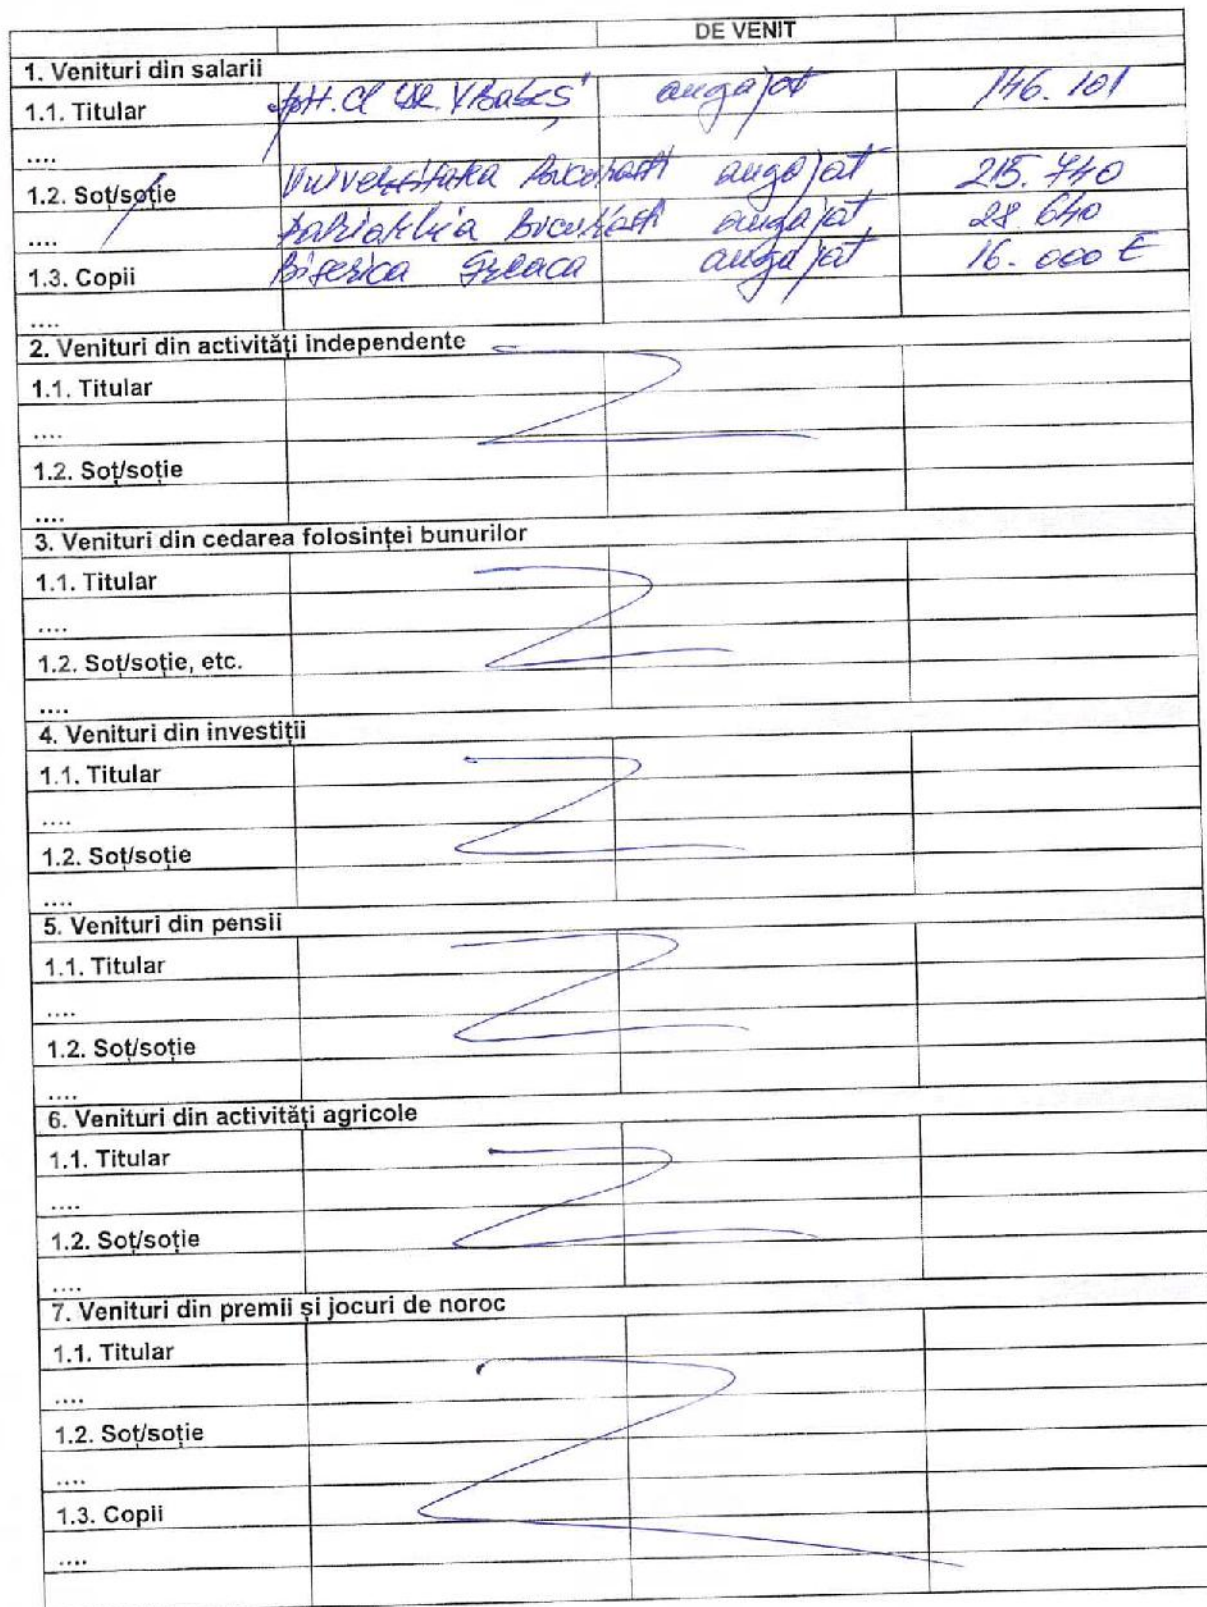 DE VENIT
1. Venituri din salarii
1.1. Titular angajat 146.101
....
1.2. Soț/soție Universitatea București angajat 215.740
.... Patriarhia București angajat 28.640
1.3. Copii Biserica Greaca angajat 16.000 €
....
2. Venituri din activități independente
1.1. Titular
....
1.2. Soț/soție
....
3. Venituri din cedarea folosinței bunurilor
1.1. Titular
....
1.2. Soț/soție, etc.
....
4. Venituri din investiții
1.1. Titular
....
1.2. Soț/soție
....
5. Venituri din pensii
1.1. Titular
....
1.2. Soț/soție
....
6. Venituri din activități agricole
1.1. Titular
....
1.2. Soț/soție
....
7. Venituri din premii și jocuri de noroc
1.1. Titular
....
1.2. Soț/soție
....
1.3. Copii
....